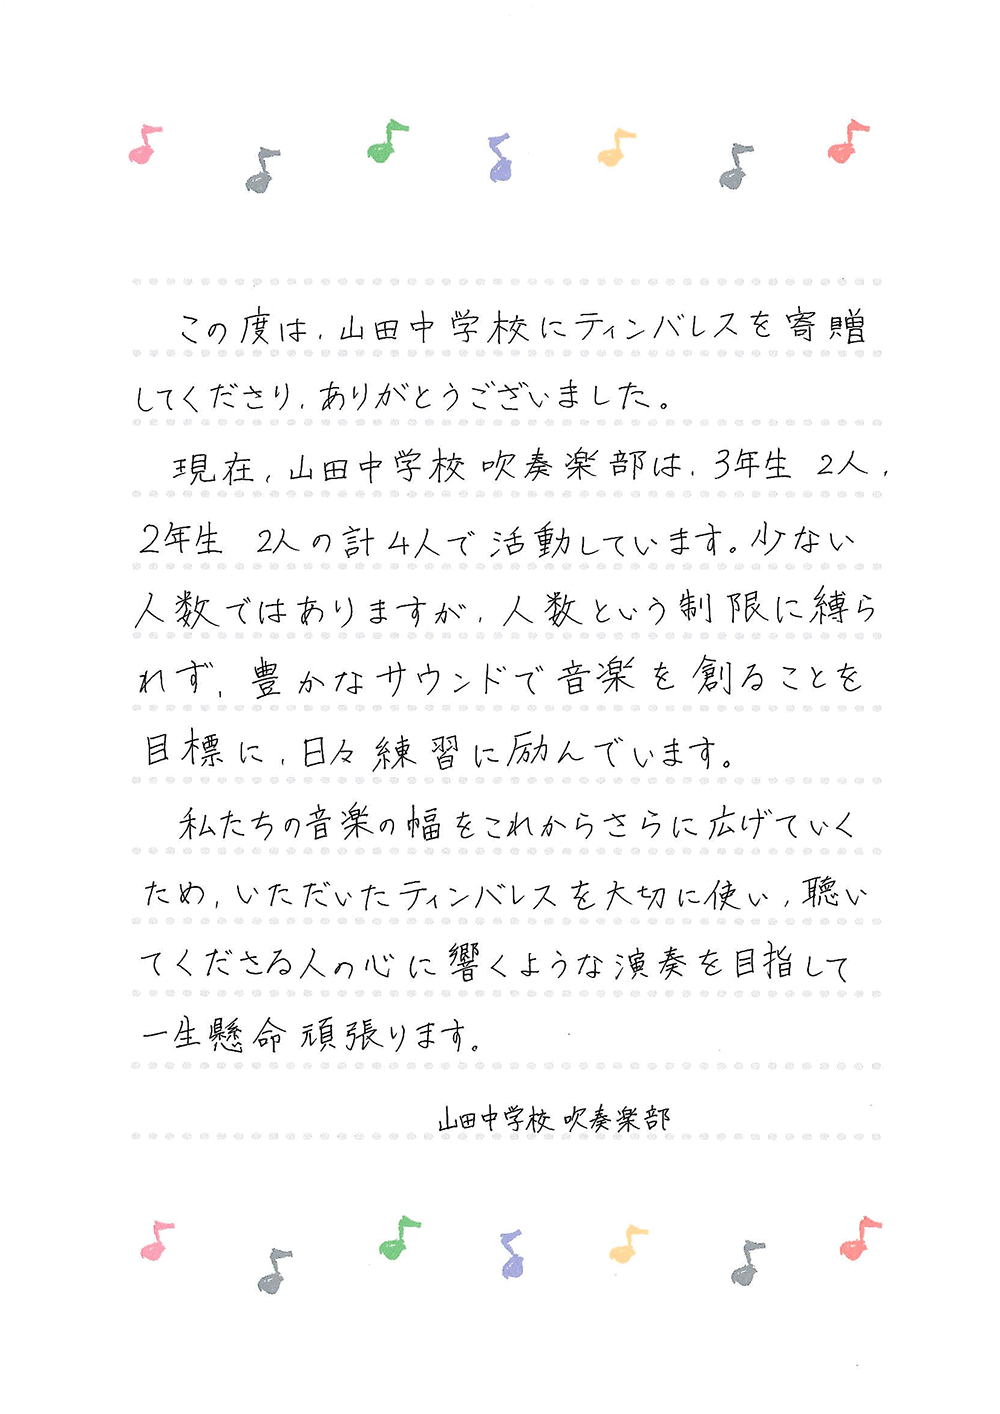 この度は,山田中学校にティンバレスを寄贈
してくださり,ありがとうございました。
現在,山田中学校 吹奏楽部は,3年生 2人,
2年生 2人の計4人で活動しています。少ない
人数ではありますが,人数という制限に縛ら
れず,豊かなサウンドで音楽を創ることを
目標に,日々練習に励んでいます。
私たちの音楽の幅をこれからさらに広げていく
ため,いただいたティンバレスを大切に使い,聴い
てくださる人の心に響くような演奏を目指して
一生懸命頑張ります。
山田中学校 吹奏楽部